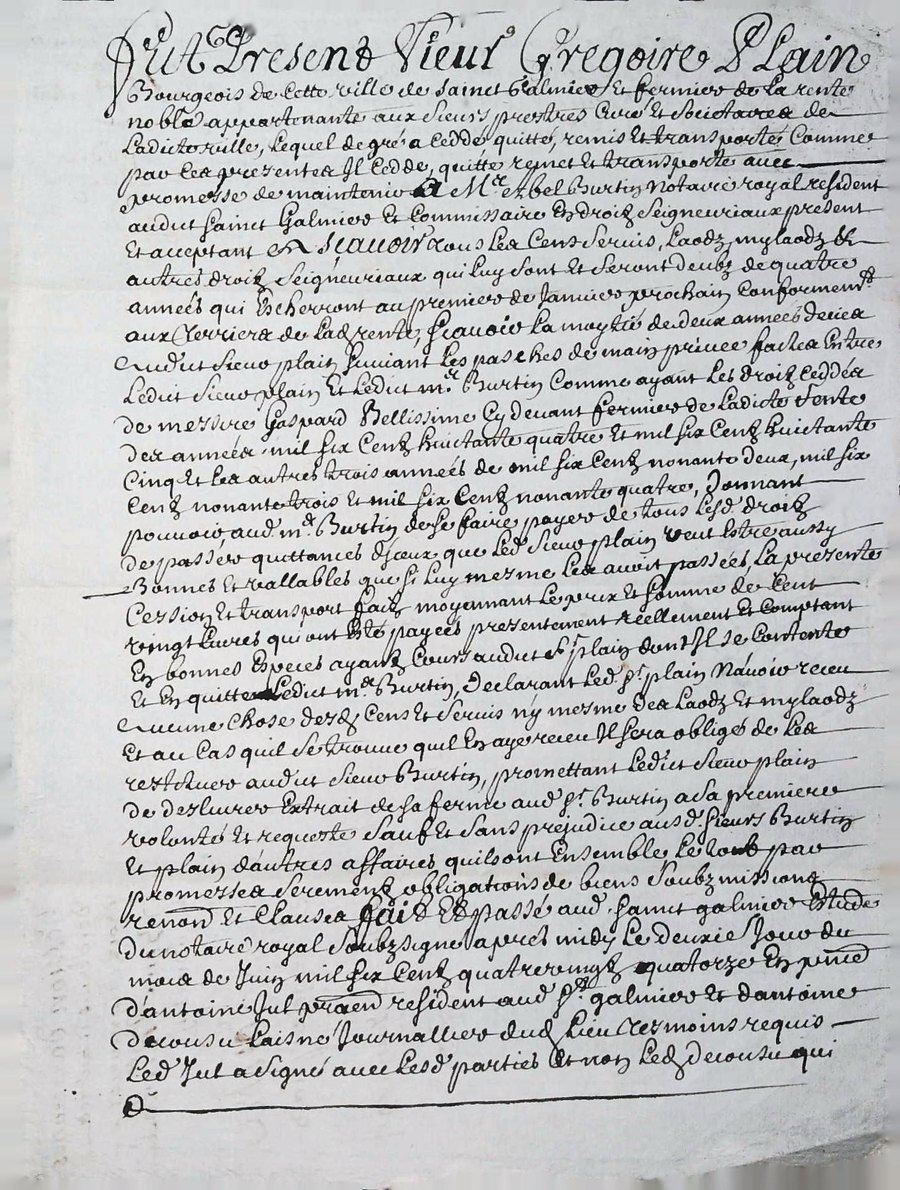 Fut Present Sieur Gregoire Plain
Bourgeois de Cette ville de Sainct Galmier Et fermier de La rente
noble appartenante aux Sieurs prestres Curé et Societaires de
Ladicte ville, Lequel de gré a Ceddé quitté, remis Et transporté Comme
par Les presentes Il Cedde, quitte remet Et transporte avec
promesse de maintenir A Mre Abel Burtin Notaire royal resident
audict Sainct Galmier Et Commissaire En droitz Seigneuriaux present
Et acceptant En Scauoir tous Les Cens Seruis, Laodz, mylaodz &
autres droitz Seigneuriaux qui Luy sont Et seront deubz de quatre
années qui Escherront au premier de Januier prochain Conformemt
aux Terriers de Lad rente, Scauoir La moytié de deux années
audict Sieur plain suiuant Les pasches de main priuee faictes Entre
Ledict Sieur plain Et Ledict mre Burtin Comme ayant Les droitz Ceddés
de messire Gaspard Bellissime Cy deuant fermier de Ladicte rente
des années mil six Centz huictante quatre Et mil six Centz huictante
Cinq Et Les autres trois années de mil six Centz nonante deux, mil six
Centz nonante trois Et mil six Centz nonante quatre, Donnant
pouuoir aud. mre Burtin de se faire payer de tous Lesd. droitz
De passer quittances d'Iceux que Led Sieur plain veut Estre aussy
Bonnes Et vallables que si Luy mesme Les auoit passées, La presente
Cession Et transport faitz moyennant Le prix Et somme de Cent
vingt Liures qui ont Esté payées presentement réellement Et Comptant
En bonnes Especes ayantz Cours audict Sr plain dont Il se Contente
Et En quitte Ledict mre Burtin, Declarant Led Sr plain N'auoir receu
Aucune Chose desd Cens Et Seruis ny mesme des Laodz Et mylaodz
Et au Cas quil se trouue quil En aye receu Il sera obligé de Les
restituer audict Sieur Burtin, promettant Ledict Sieur plain
de desliurer Extrait de sa ferme aud Sr Burtin a sa premiere
volonté Et requeste Sauf Et Sans prejudice ausd Sieurs Burtin
Et plain dautres affaires quils ont Ensemble Le tout par
promesses Serementz obligations de biens Soubzmissions
renond Et Clauses fait Et passé aud. Sainct galmier Estude
du notaire royal Soubzsigné apres midy Le deuxie Jour du
mois de Juin mil six Centz quatre vingtz quatorze En pnce
d'antoine Jul resident aud St galmier Et d'antoine
decousu Laisné Journallier dud Lieu Tesmoins requis
Led Jul a signé auec Lesd parties Et non Led decousu qui